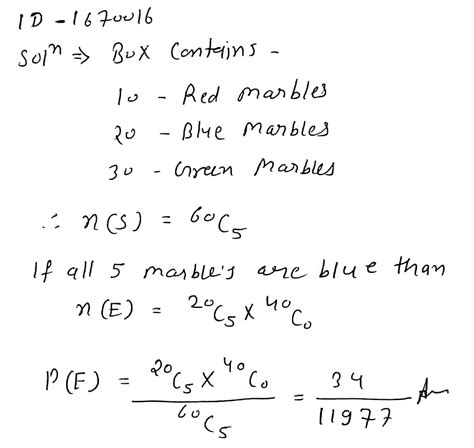 ID - 1670016
Solⁿ ⇒ Box Contains -
10 - Red marbles
20 - Blue Marbles
30 - Green Marbles
∴ n(S) = ⁶⁰C₅
If all 5 marble's are blue than
n(E) = ²⁰C₅ X ⁴⁰C₀
P(E) = ²⁰C₅ X ⁴⁰C₀ / ⁶⁰C₅ = 34 / 11977 Ans